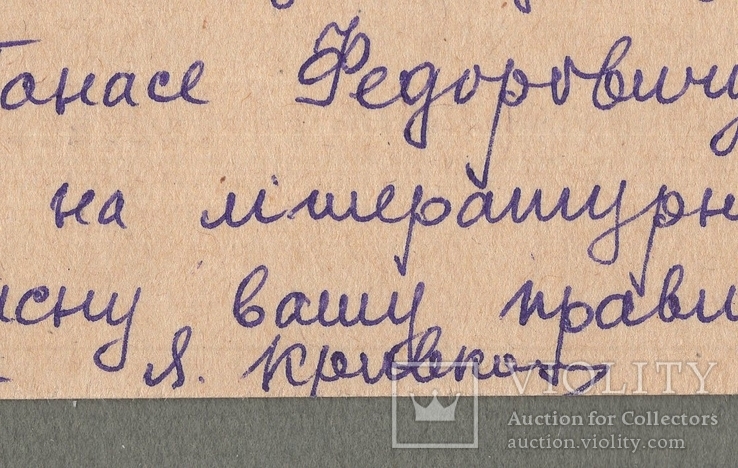 танасе Федоровичу
на літературн
исну вашу прави
Я. Кривко
VIOLITY
Auction for Collectors
auction.violity.com